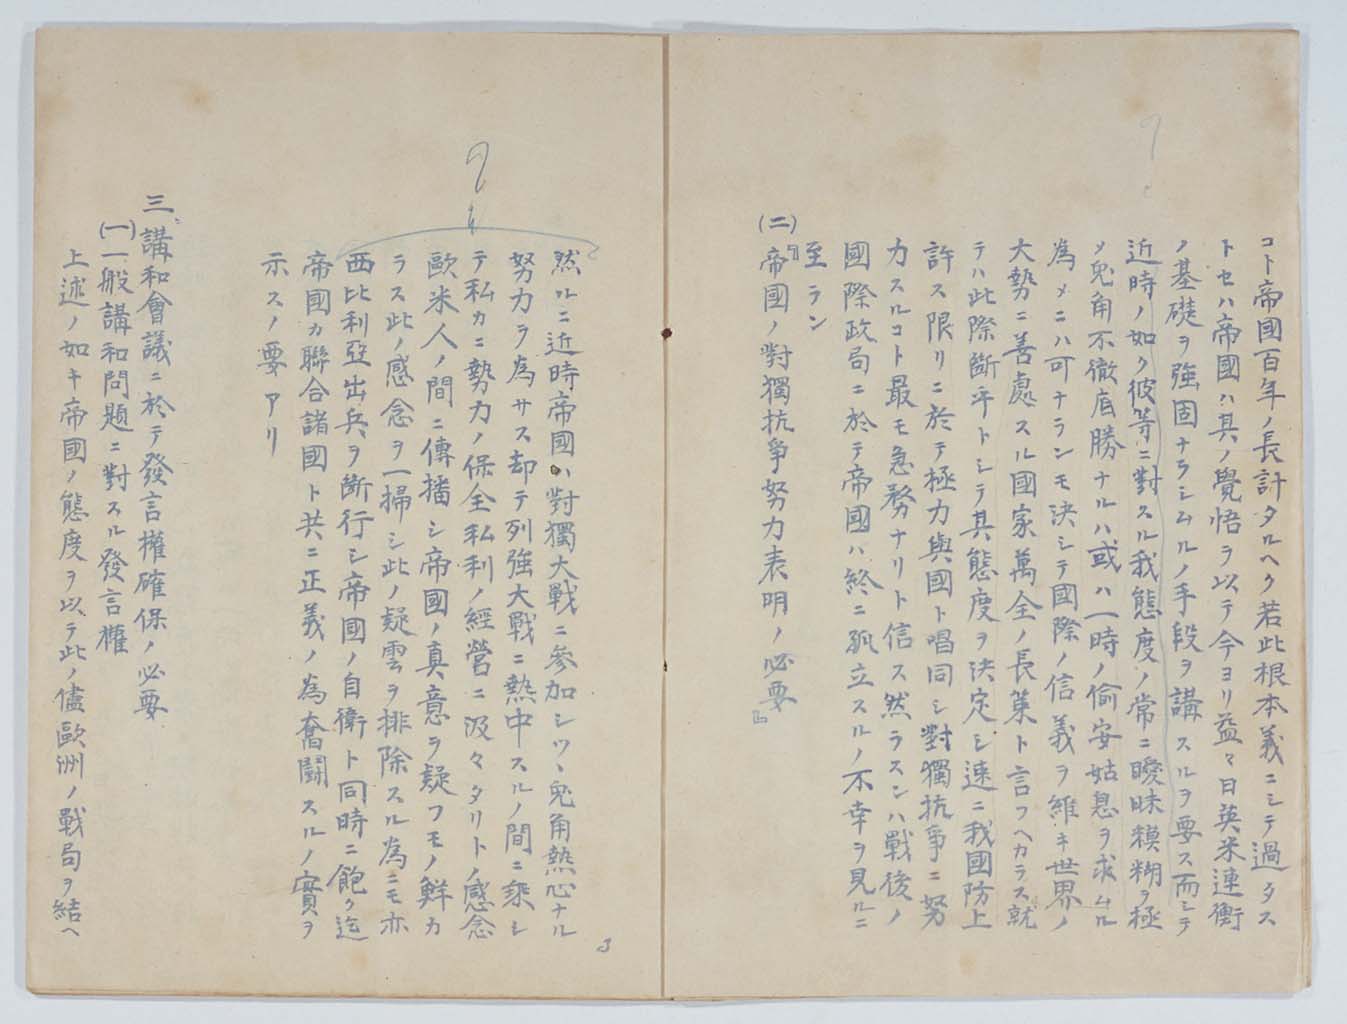 コト帝國百年ノ長計タルヘク若此根本義ニシテ過タス
トセハ帝國ハ其ノ覺悟ヲ以テ今ヨリ益々日英米連衡
ノ基礎ヲ強固ナラシムルノ手段ヲ講スルヲ要ス而シテ
近時ノ如ク彼等ニ對スル我態度ノ常ニ曖昧糢糊ヲ極
メ兎角不徹底勝ナルハ或ハ一時ノ偷安姑息ヲ求ムル
為メニハ可ナランモ決シテ國際ノ信義ヲ維キ世界ノ
大勢ニ善處スル國家萬全ノ長策ト言フヘカラス就
テハ此際斷乎トシテ其態度ヲ決定シ速ニ我國防上
許ス限リニ於テ極力與國ト唱同シ對獨抗爭ニ努
力スルコト最モ急務ナリト信ス然ラスンハ戰後ノ
國際政局ニ於テ帝國ハ終ニ孤立スルノ不幸ヲ見ルニ
至ラン
(二)『帝國ノ對獨抗爭努力表明ノ必要』
然ルニ近時帝國ハ對獨大戰ニ參加シツヽ兎角熱心ナル
努力ヲ為サス却テ列強大戰ニ熱中スルノ間ニ乘シ
テ私カニ勢力ノ保全私利ノ經營ニ汲々タリトノ感念
歐米人ノ間ニ傳播シ帝國ノ真意ヲ疑フモノ鮮カ
ラス此ノ感念ヲ一掃シ此ノ疑雲ヲ排除スル為ニモ亦
西比利亞出兵ヲ斷行シ帝國ノ自衛ト同時ニ飽ク迄
帝國カ聯合諸國ト共ニ正義ノ為奮鬪スルノ實ヲ
示スノ要アリ
三、講和會議ニ於テ發言權確保ノ必要
(一)一般講和問題ニ對スル發言權
上述ノ如キ帝國ノ態度ヲ以テ此ノ儘歐洲ノ戰局ヲ結ヘ
3